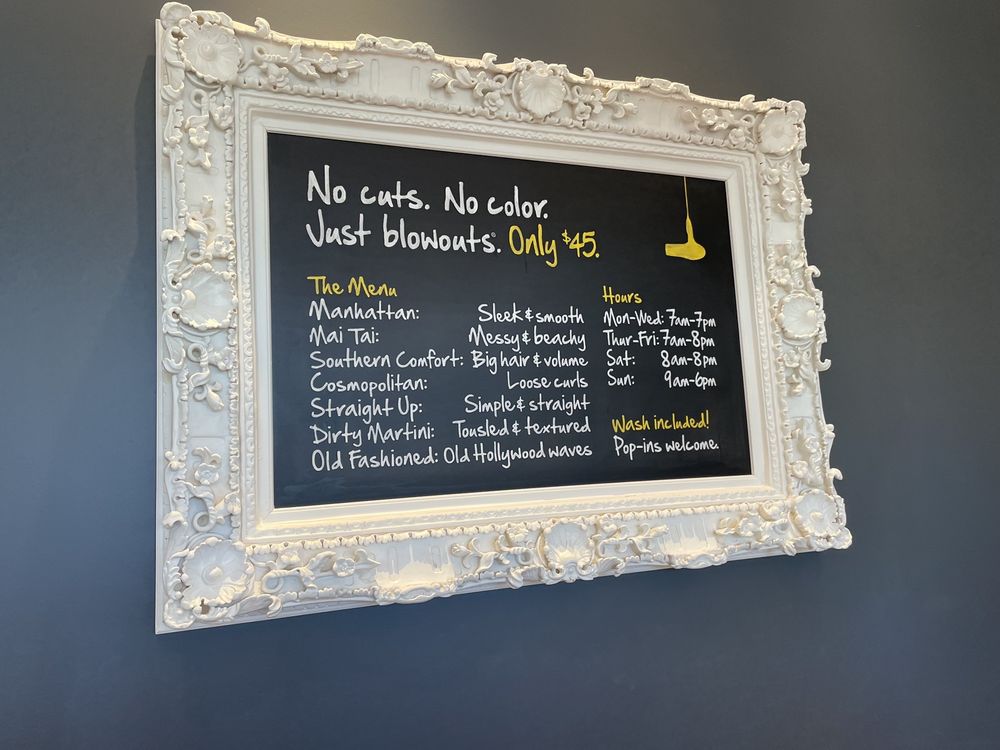 No cuts. No color.
Just blowouts®. Only $45.
The Menu
Manhattan: Sleek & smooth
Mai Tai: Messy & beachy
Southern Comfort: Big hair & volume
Cosmopolitan: Loose curls
Straight Up: Simple & straight
Dirty Martini: Tousled & textured
Old Fashioned: Old Hollywood waves
Hours
Mon-Wed: 7am-7pm
Thur-Fri: 7am-8pm
Sat: 8am-8pm
Sun: 9am-6pm
Wash included!
Pop-ins welcome.